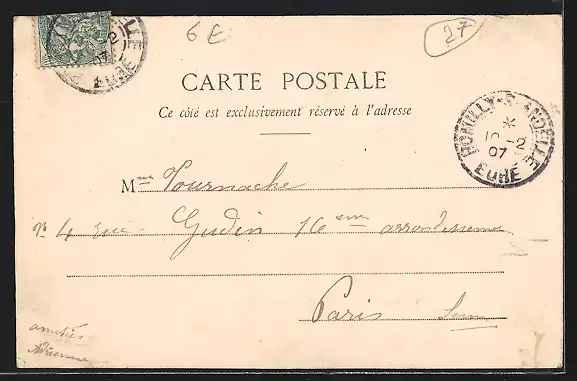 6 E
27
CARTE POSTALE
Ce côté est exclusivement réservé à l'adresse
ROMILLY-S-ANDELLE
*
10-2
07
EURE
Mme Tournache
No 4 rue Gudin 16 eme arrondissement
Paris
amitiés
Adrienne